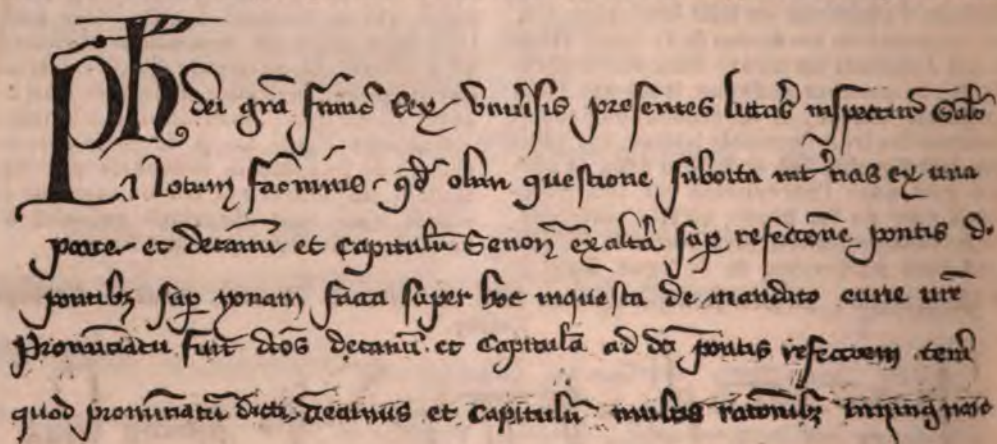 Ph dei gra franc Rex Universis presentes litteras inspecturis Salt
Notum facimus qd olim questione suborta int nos ex una
parte et decanum et Capitulum Senon ex alta sup refeccone pontis de
pontibz sup yonam facta super hoc inquesta de mandato curie nre
Pronunciatu fuit dcos decanu et Capitulu ad dci pontis refeccoem teneri
quod pronunciatu dicti decanus et Capitulu multis raconibz impugnare